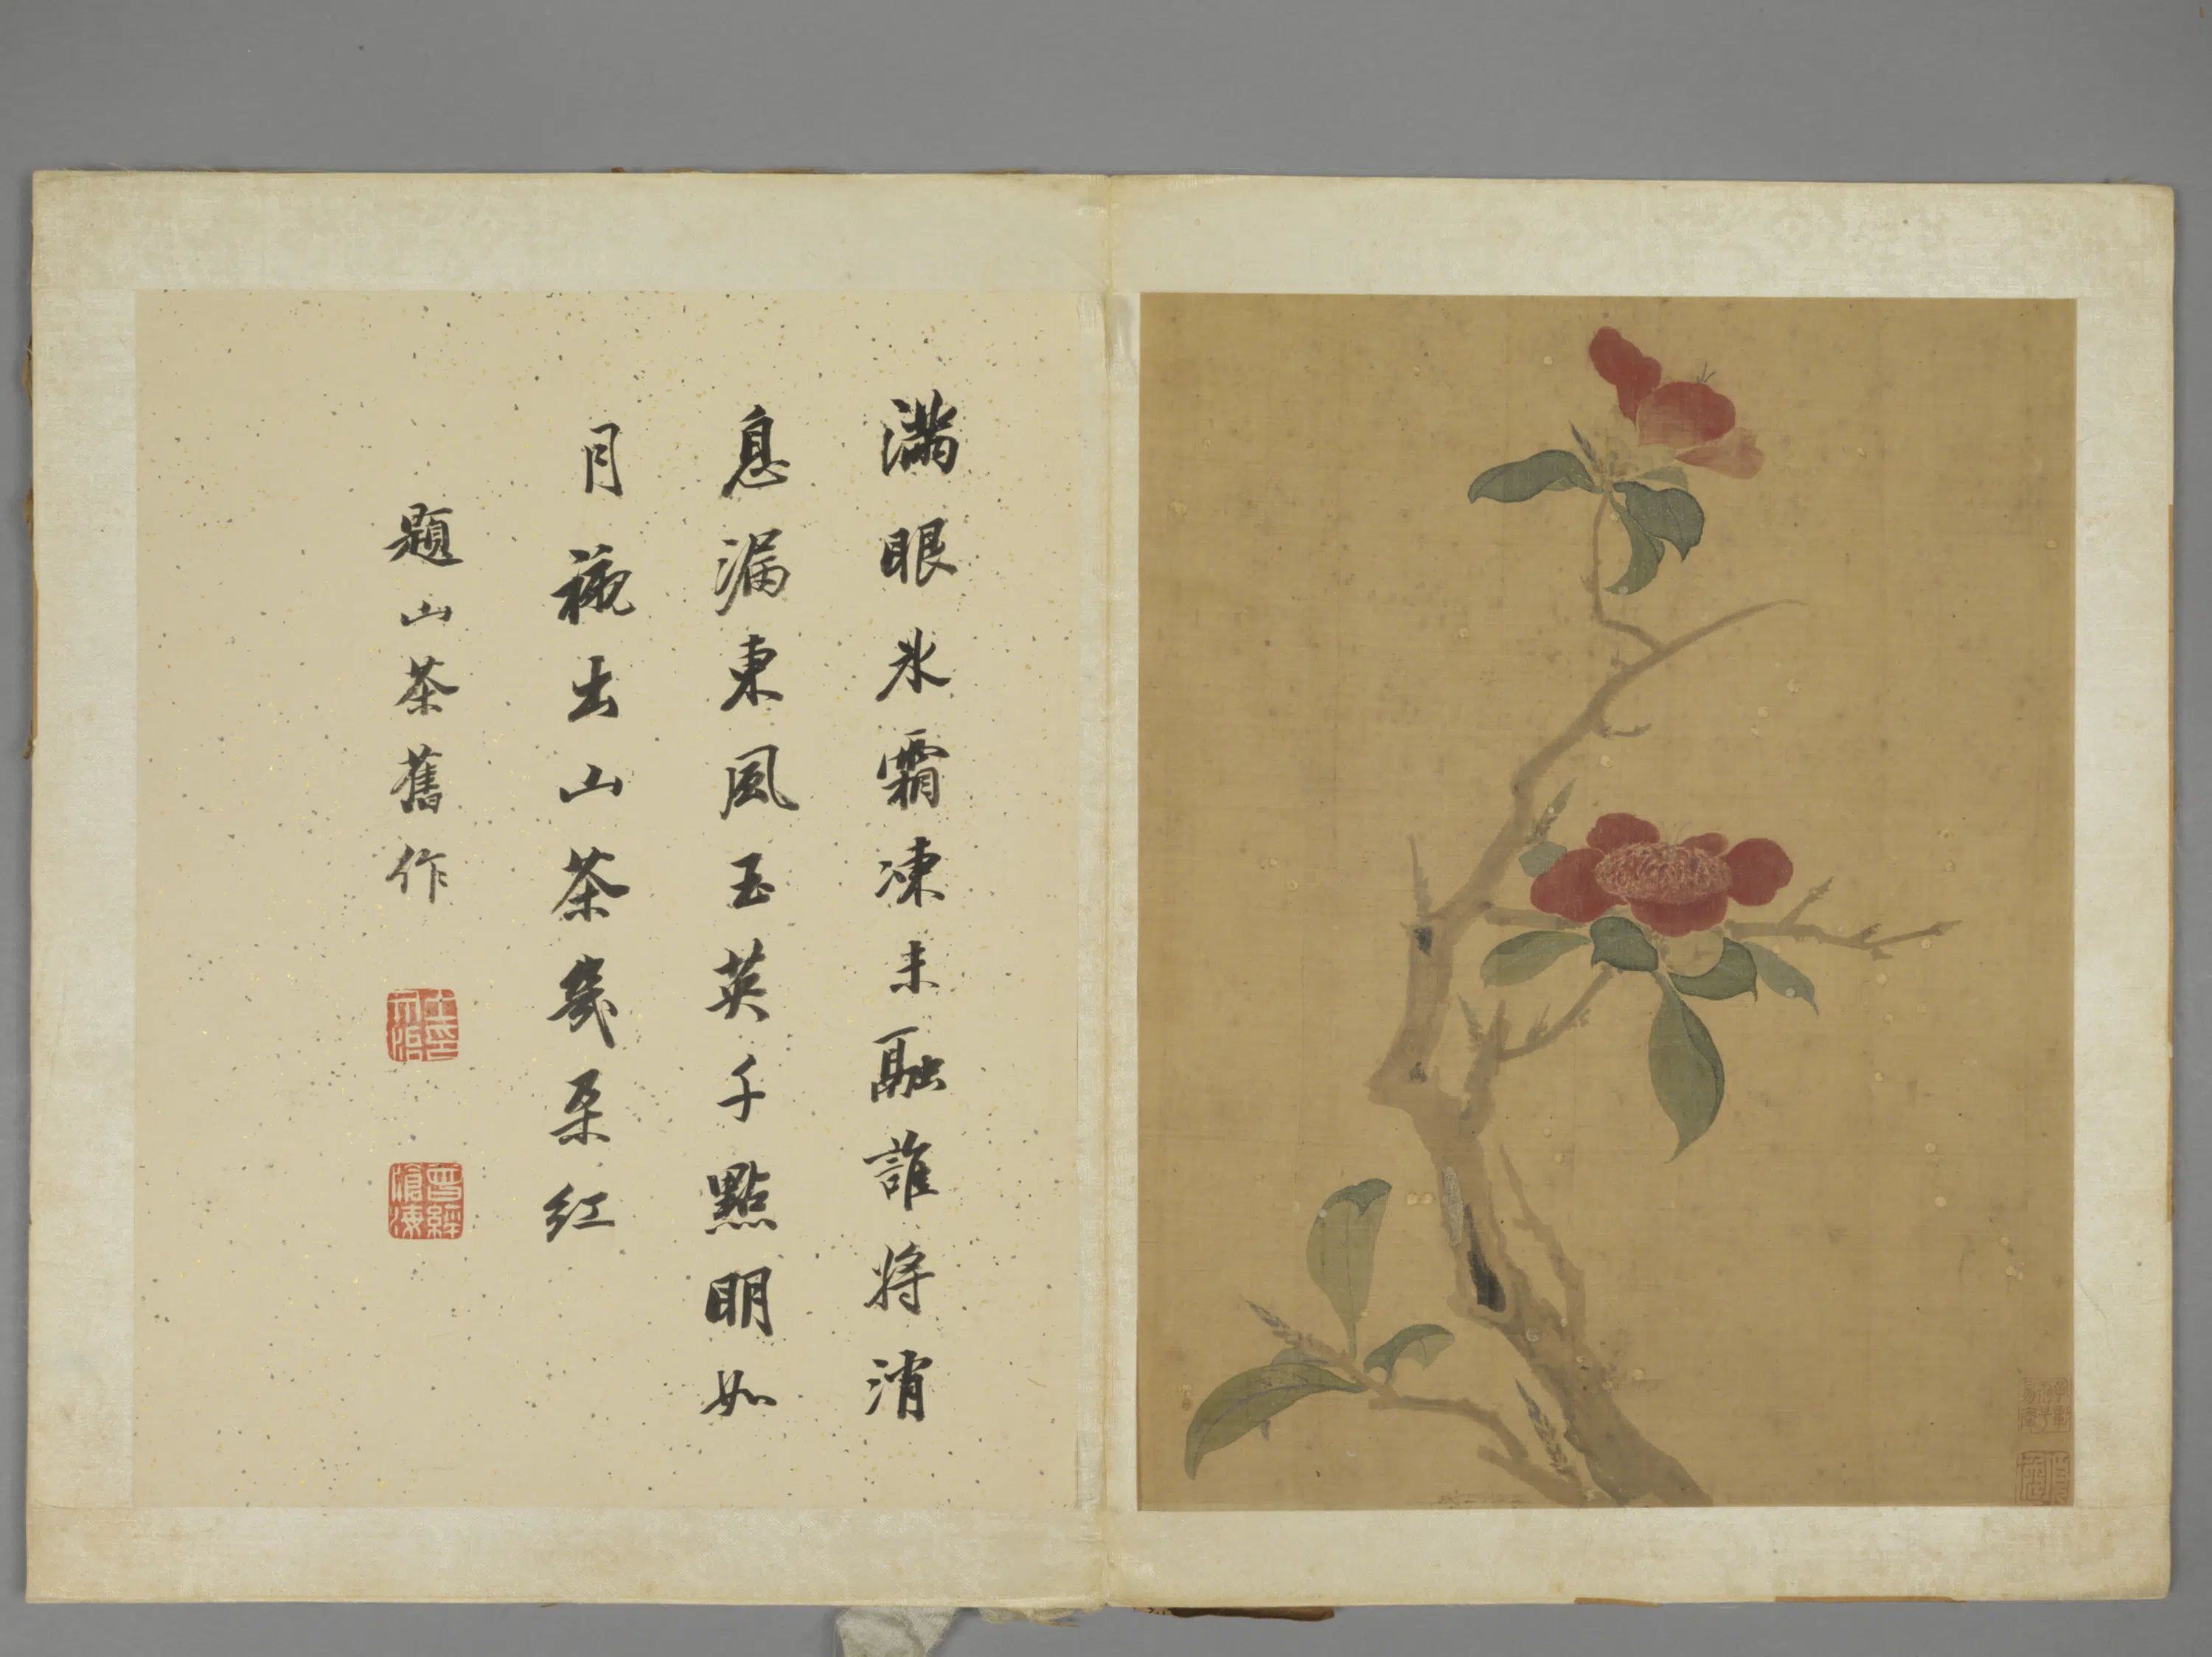 滿眼冰霜凍未融誰將消
息漏東風玉英千點明如
月襯出山茶幾朶紅
題山茶舊作
曾經滄海